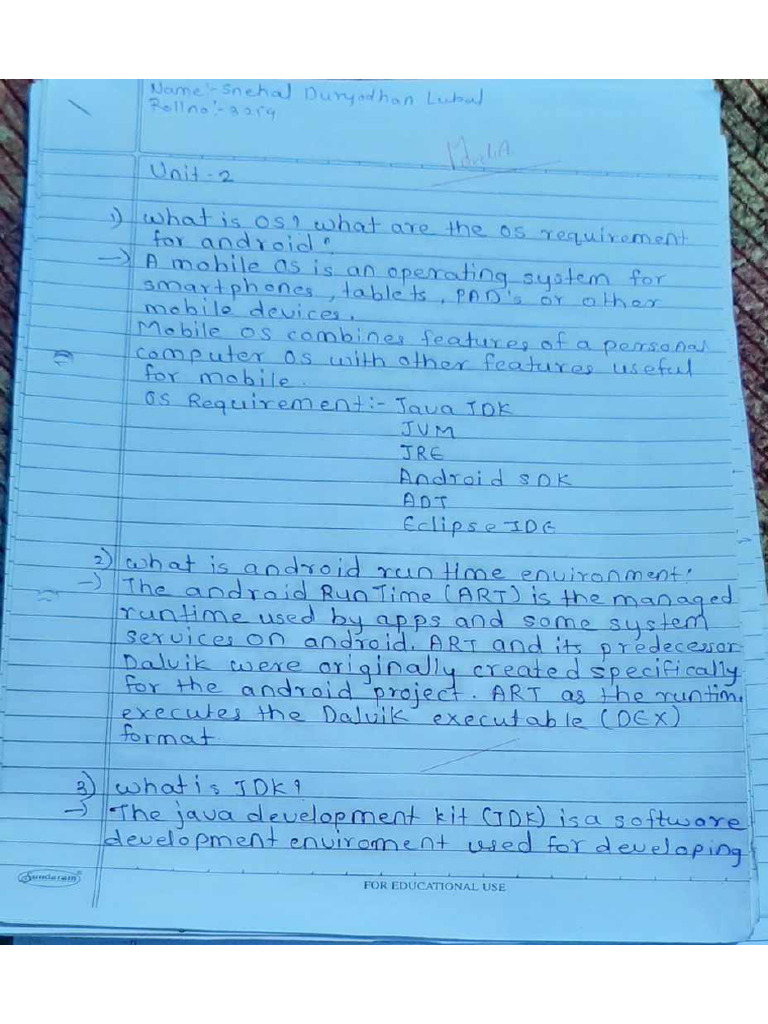 Name:- Snehal Duryodhan Lubal
Roll no:- 3259
Unit - 2
1) What is OS? What are the OS requirement
for android?
→) A mobile OS is an operating system for
smartphones, tablets, PAD's or other
mobile devices.
Mobile OS combines features of a personal
computer OS with other features useful
for mobile.
OS Requirement:- Java JDK
JVM
JRE
Android SDK
ADT
Eclipse IDE
2) What is android run time environment?
→) The android RunTime (ART) is the managed
runtime used by apps and some system
services on android. ART and its predecessor
Dalvik were originally created specifically
for the android project. ART as the runtim
executes the Dalvik executable (DEX)
format.
3) What is JDK?
→) The java development kit (JDK) is a software
development enviroment used for developing
Sundaram
FOR EDUCATIONAL USE